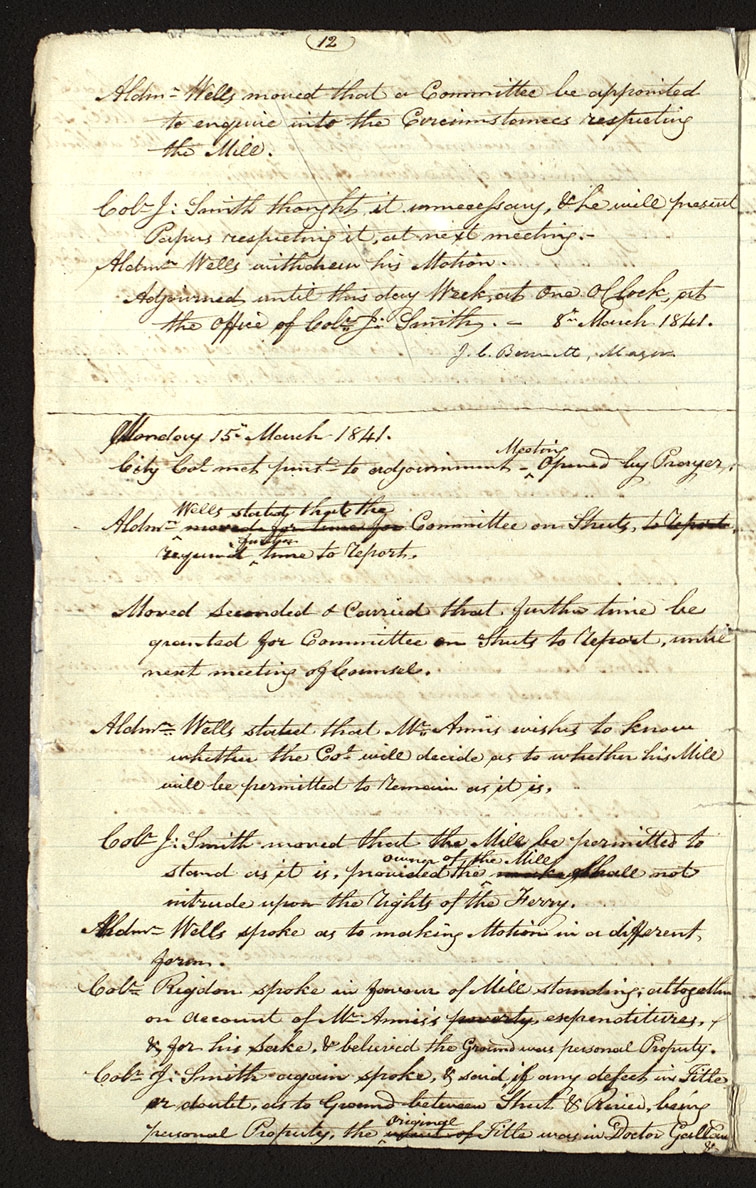 12
Aldmn Wells moved that a Committee be appointed
to enquire into the Circumstances respecting
the Mill.
Colr J: Smith thought it unnecessary, & he will present
Papers respecting it, at next meeting.-
Aldmn Wells withdrew his Motion.
Adjourned until this day Week, at One O'Clock, at
the Office of Colr J: Smith. - 8th March 1841.
J. C. Bennett, Mayor
Monday 15th March 1841.
Meeting
City Col met purst to adjournment - Opened by Prayer.
Wells stated that the
Aldmn moved for time for Committee on Streets, to Report.
further
required time to report.
Moved seconded & Carried that further time be
granted for Committee on Streets to Report, until
next meeting of Counsel.
Aldmn Wells stated that Mr Annis wishes to know
whether the Col will decide, as to whether his Mill
will be permitted to remain as it is.
Colr J: Smith moved that the Mill be permitted to
owner of the Mill
stand as it is, provided the shall not
intrude upon the rights of the Ferry.
Aldmn Wells spoke as to making Motion in a different
form.
Colr Rigdon spoke in favour of Mill standing; altogether
on account of Mr Annis's poverty, expenditures,
& for his sake, & believed the Ground was personal Property.
Colr J: Smith again spoke, & said, if any defect in Title
or doubt, as to Ground between Street & River, being
original
personal Property, the Title was in Doctor Galland
&